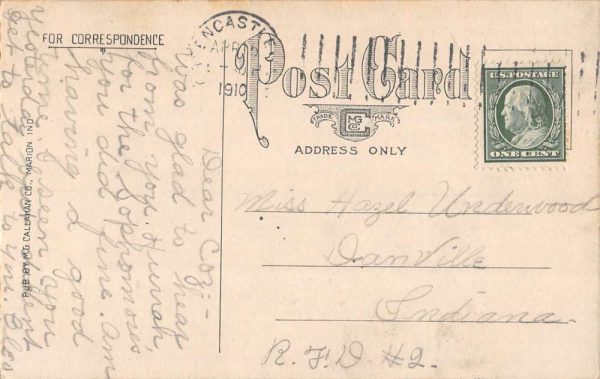 FOR CORRESPONDENCE
ENCASTLE
APR
1910
Post Card
TRADE MARK
MG
CO
ADDRESS ONLY
U.S. POSTAGE
ONE CENT
Miss Hazel Underwood
Danville
Indiana.
R.F.D. #2.
Dear Coz:-
was glad to hear
from you. Hurrah,
for the Sophomores
you did fine. Am
having a good
time. I seen you
get to talk to you.
PUB. BY M.G. CALLAHAN CO., MARION IND